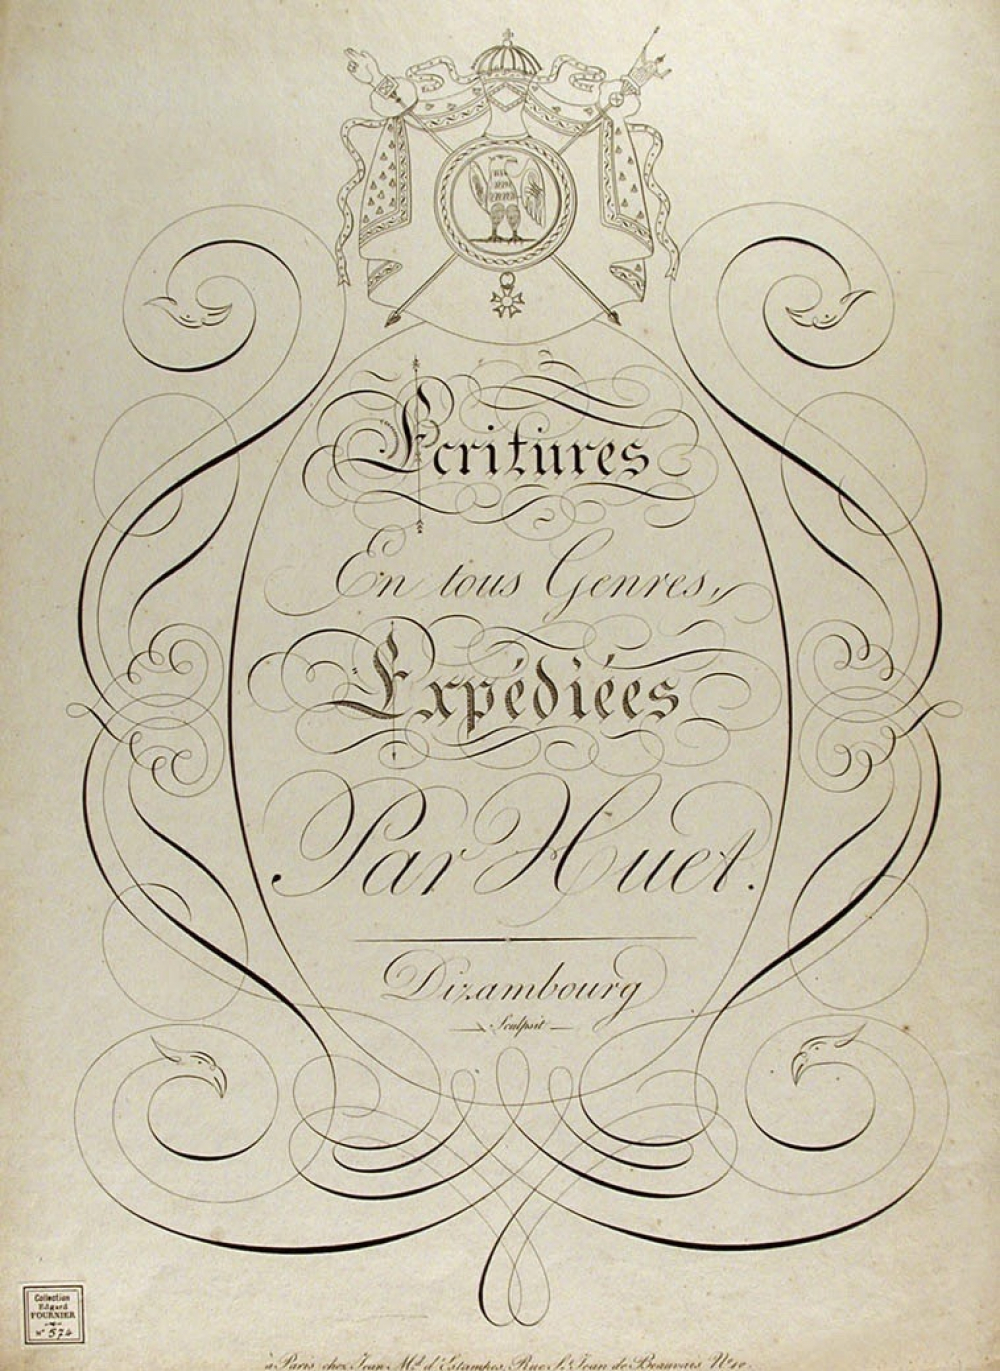 Ecritures
En tous Genres,
Expédiées
Par Huet.
Dizambourg
Sculpsit
Collection
Edgard
FOURNIER
N° 574
à Paris chez Jean Md. d'Estampes, Rue St. Jean de Beauvais No. 10.